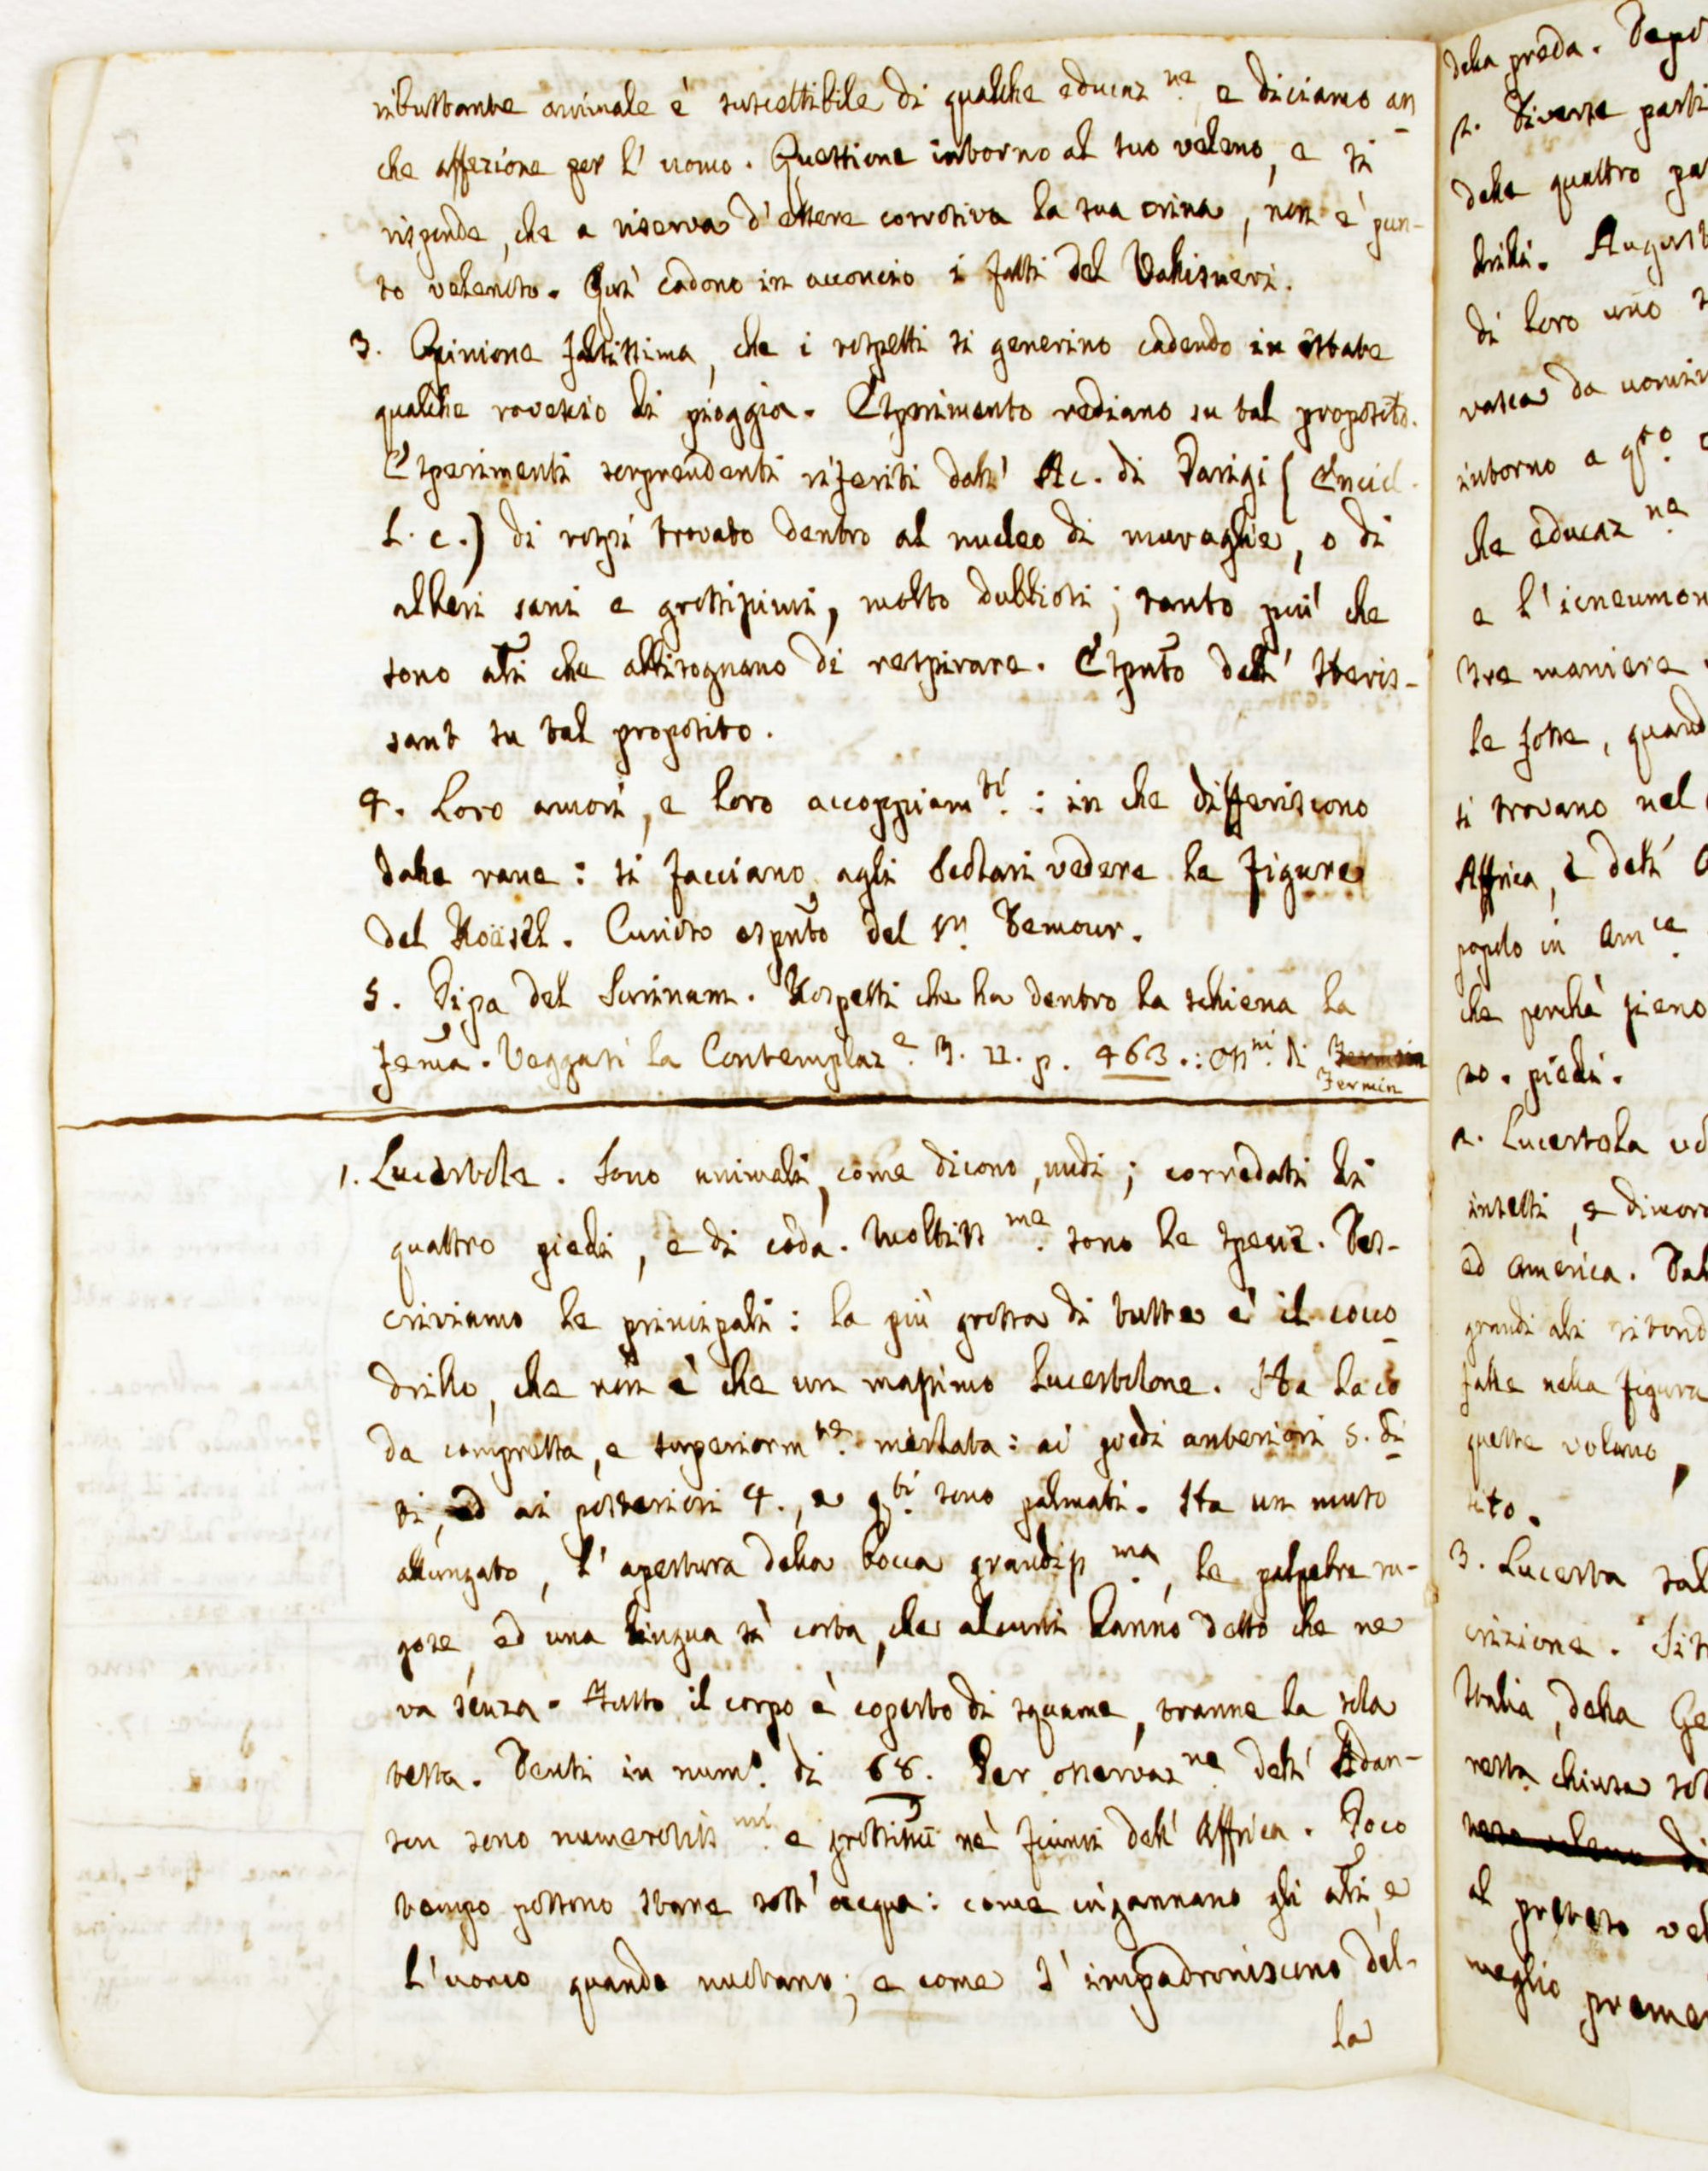 ributtante animale è suscettibile di qualche educaz.ne e diciamo an
che affezione per l' uomo. Questione intorno al suo veleno, e si
risponde, che a riserva d'essere corrosiva la sua orina, non e' pun-
to velenoso. Qui' cadono in acconcio i fatti del Vallisneri.
3. Opinione falsissima, che i rospetti si generino cadendo in estate
qualche rovescio di pioggia. Esperimento rediano su tal proposito.
Esperimenti sorprendenti riferiti dall' Ac. di Parigi (Encicl.
l. c.) di rospi trovato dentro al nucleo di muraglie, o di
alberi sani e grossissimi, molto dubbiosi; tanto più che
sono ali che abbisognano di respirare. Espto dell' Heris-
sant su tal proposito.
4. Loro amori, e loro accoppiam.ti : in che differiscono
dalle rane : si facciano agli Scolari vedere le figure
del Roäsel. Curioso espto del Sr. Demour.
5. Pipa del Surinam. Rospetti che ha dentro la schiena la
fema. Veggasi la Contemplaz.e T. II. p. 463. : di
Fermin
1. Lucertole. Sono animali, come dicono, nudi; corredati di
quattro piedi, e di coda. Moltiss.me sono le specie. Des-
criviamo le principali : la più grossa di tutte e' il coco
drillo, che non è che un massimo lucertolone. Ha la co
da compressa, e superiorm.te merlata : ai piedi anteriori 5. di
ti, ed ai posteriori 4., e q.ti sono palmati. Ha un muso
allungato, l' apertura della bocca grandiss.ma, le palpebre ru-
gose, ed una lingua sì corta, che alcuni hanno detto che ne
va senza. Tutto il corpo è coperto di squame, tranne la sola
testa. Denti in num.o di 68. Per osservaz.ne dell' Adan-
son sono numerosiss.mi e grossimi ne' fiumi dell' Affrica. Poco
tempo possono stare sott' acqua : come ingannano gli ali, e
l'uomo quando nuotano; e come s' impadroniscono del-
la
della preda. Dopo
2. Diverse parti
delle quattro pa
drilli. August
di loro uno s
vasca da uomin
intorno a q.to
che educaz.ne
e l'icneumon
tre maniere
le fosse, quand
si trovano nel
Affrica, e dell' A
popolo in Am.ca
che perchè pieno
so. piedi.
2. Lucertola vo
insetti, e dimora
ed America. Dal
grandi ali ritond
fatte nella figura
queste volano,
sito.
3. Lucerta sal
crizione. Si tr
Italia, della Ge
resta chiusa sot
al preteso vel
meglio preme